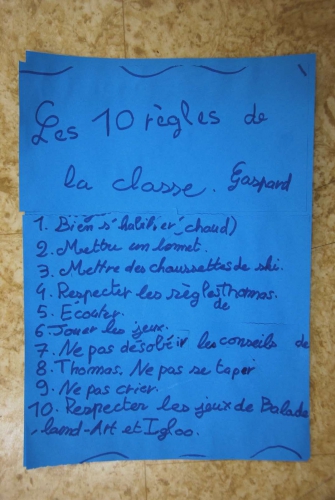 Les 10 règles de
la classe. Gaspard
1. Bien s'habiller (chaud)
2. Mettre un bonnet.
3. Mettre des chaussettes de ski.
4. Respecter les règles Thomas.
5. Ecouter. de
6. Jouer les jeux.
7. Ne pas désobéir les conseils de
8. Thomas. Ne pas se taper
9. Ne pas crier.
10. Respecter les jeux de Balade
, land-Art et Igloo.